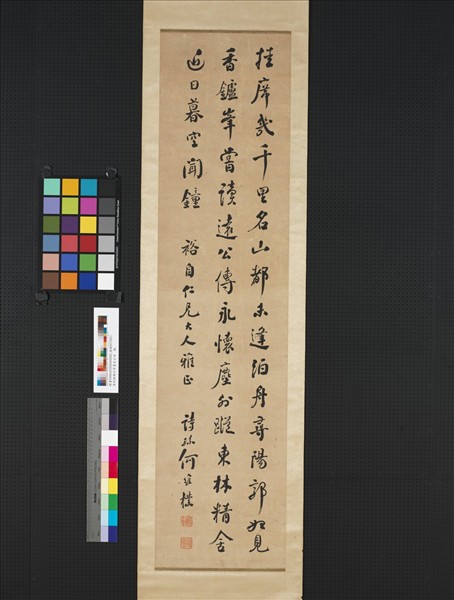 挂席幾千里名山都未逢泊舟尋陽郭始見
香鑪峯嘗讀遠公傳永懷塵外蹤東林精舍
近日暮空聞鐘 裕自仁兄大人雅正 詩孫何維樸